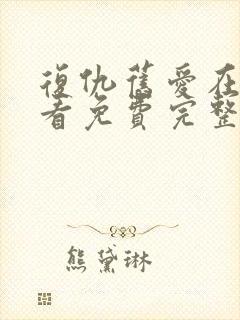 復仇舊愛在
看免費完整
熊黛琳